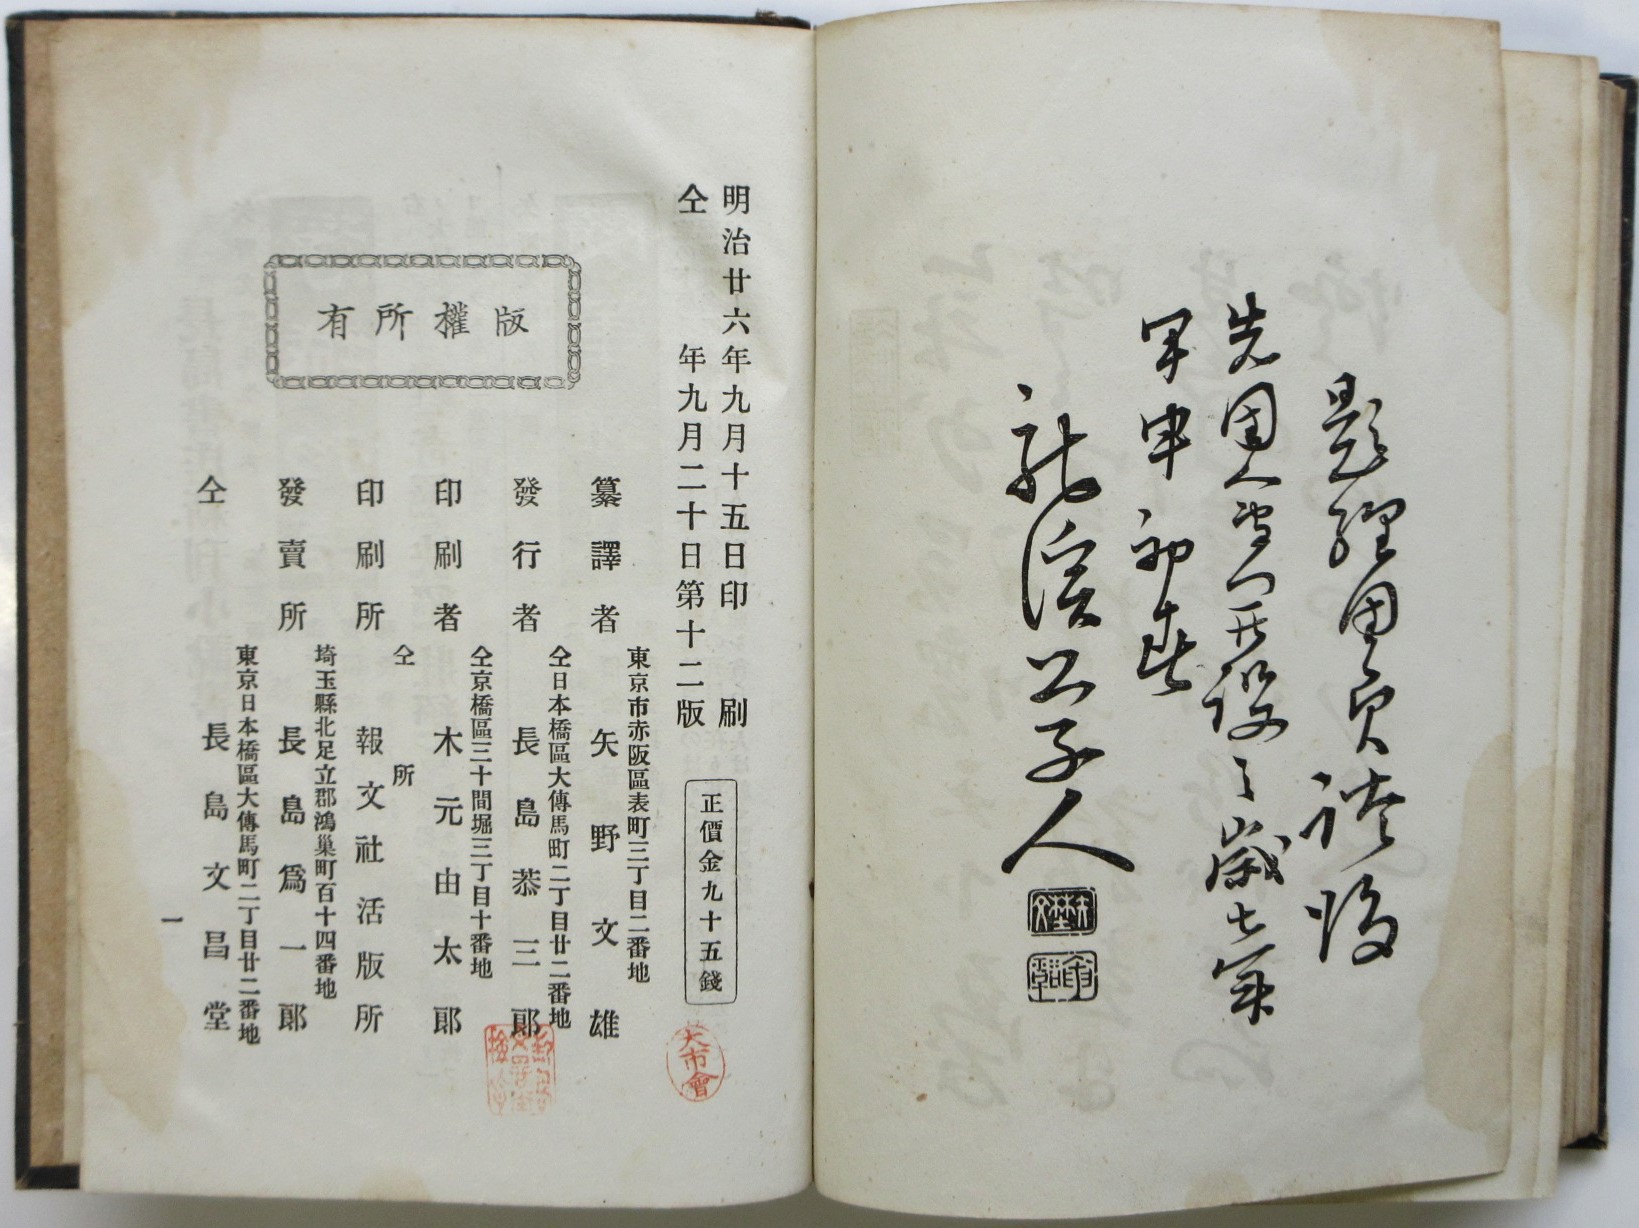 題經国美談後
先国人当ニ開設之歳七年
甲申初春
龍渓學人
明治廿六年九月十五日印刷
仝年九月二十日第十二版
正價金九十五錢
版權所有
東京市赤阪區表町三丁目二番地
纂譯者 矢野文雄
仝日本橋區大傳馬町二丁目廿二番地
發行者 長島恭三郎
仝京橋區三十間堀三丁目十番地
印刷者 木元由太郎
仝所
印刷所 報文社活版所
埼玉縣北足立郡鴻巢町百十四番地
發賣所 長島爲一郎
東京日本橋區大傳馬町二丁目廿二番地
仝 長島文昌堂
大市會
一